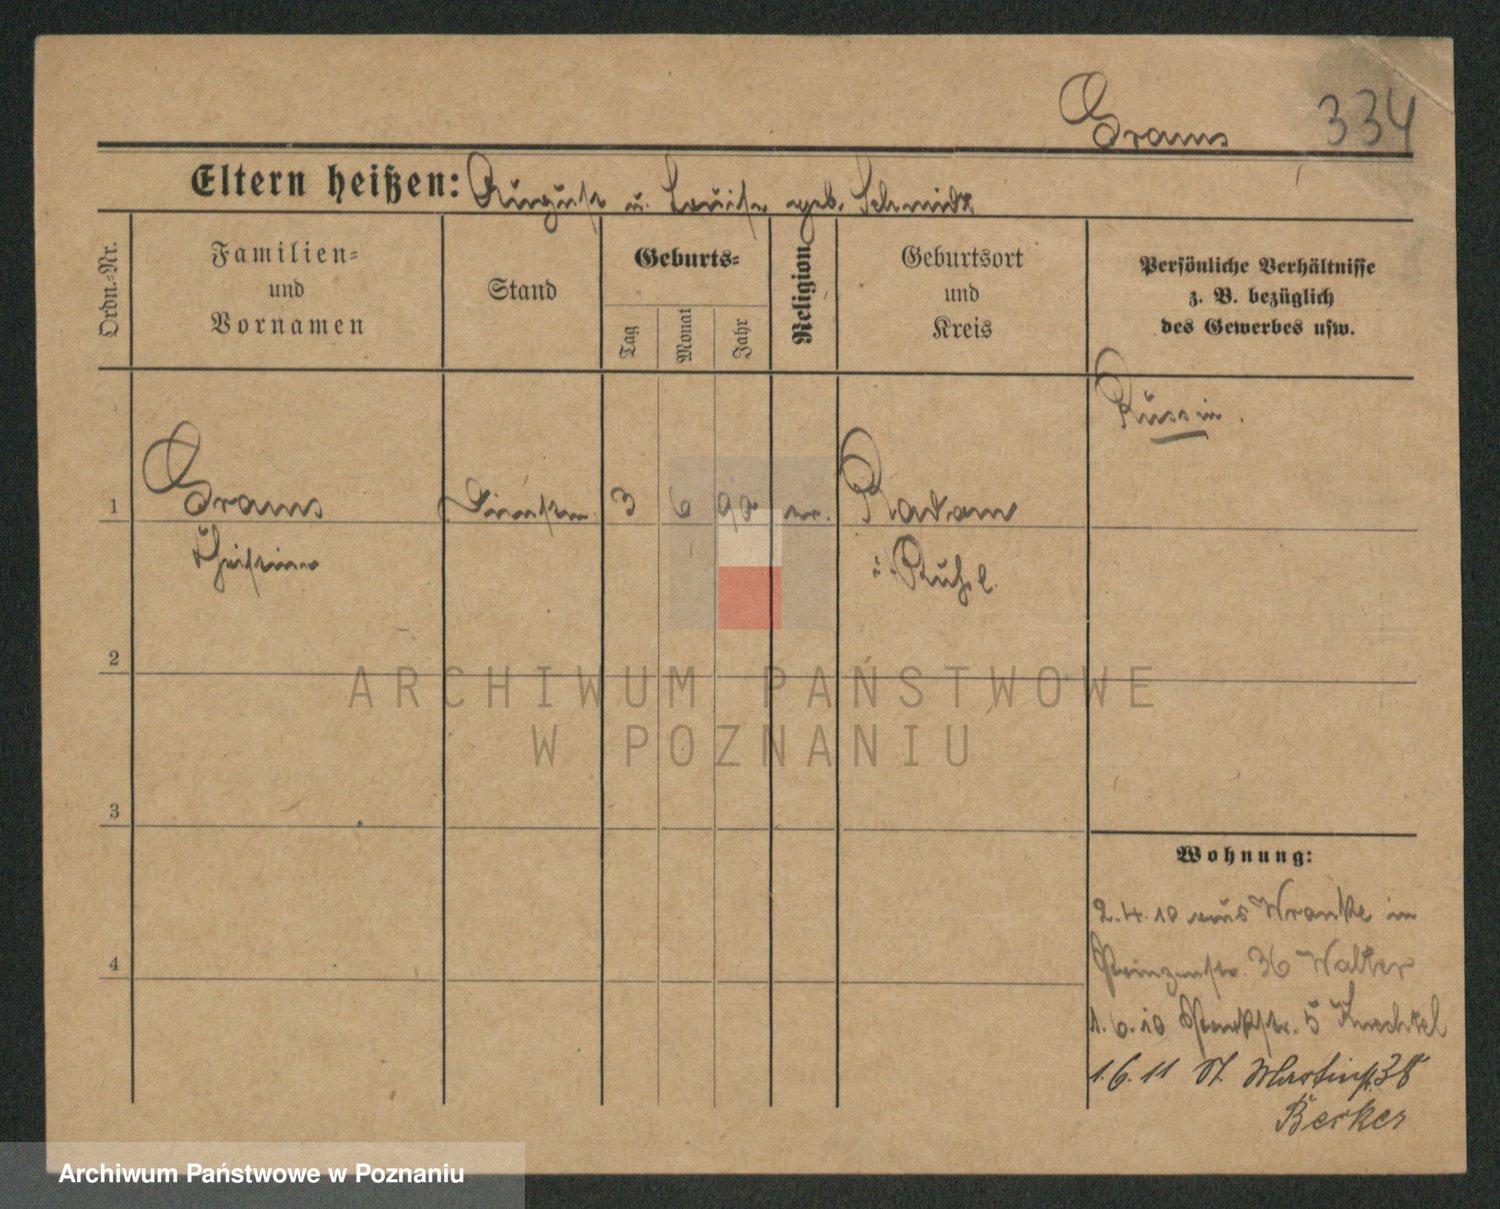 Grams
334
Eltern heißen: August u. Louise geb. Schmidt
Ordn.-Nr.
Familien-
und
Vornamen
Stand
Geburts-
Tag
Monat
Jahr
Religion
Geburtsort
und
Kreis
Persönliche Verhältnisse
z. B. bezüglich
des Gewerbes usw.
Russin.
1
Grams
3
6
90
ev.
Radom
2
3
4
Wohnung:
2.4.10 aus Wronke in
Prinzenstr. 36 Walter
1.6.10 Parkstr. 5 Knechtel
1.6.11 St. Martinstr. 38
Becker
ARCHIWUM PAŃSTWOWE
W POZNANIU
Archiwum Państwowe w Poznaniu